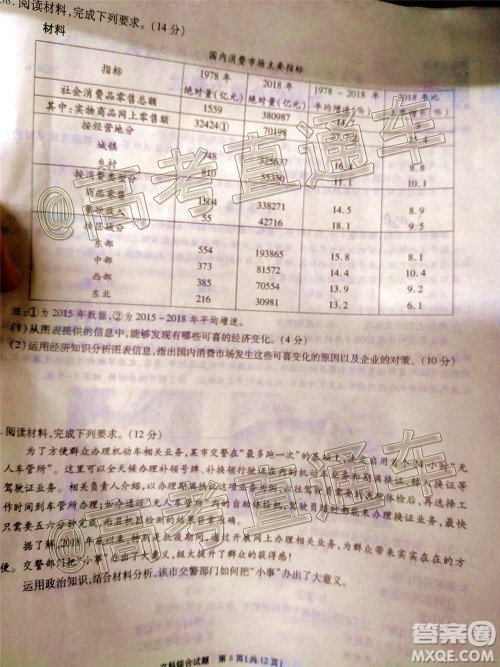 38. 阅读材料,完成下列要求。(14分)
材料
国内消费市场主要指标
指标 1978年 绝对量(亿元) 2018年 绝对量(亿元) 1978-2018年 年均增速(%)
社会消费品零售总额 1559 380987
其中:实物商品网上零售额 32424① 70198 25.4
按经营地分
城镇 748 325637 8.8
乡村 810 55350 11.1 10.1
按消费类型分
商品零售 1504 338271 14.5 8.9
餐饮收入 55 42716 18.1 9.5
按区域分
东部 554 193865 15.8 8.1
中部 373 81572 14.4 10.4
西部 385 70554 13.9 9.2
东北 216 30981 13.2 6.1
注:①为2015年数据,②为2015-2018年平均增速。
(1)从图表提供的信息中,能够发现有哪些可喜的经济变化。(4分)
(2)运用经济知识分析图表信息,指出国内消费市场发生这些可喜变化的原因以及企业的对策。(10分)
阅读材料,完成下列要求。(12分)
为了方便群众办理机动车相关业务,某市交警在“最多跑一次”的基础上
人车管所”。这里可以全天候办理补领号牌、补换领行驶证在内的机动车
驾驶证业务。相关负责人介绍,以往办理期满换证
作时间到车管所办理;如今通过“无人车管所”内的自助体检机,
只需要五六分钟完成,而且机器检测的结果也非常准确。
据了解,2018年底以来,特别是抗疫期间,通过开展网上办理相关业务,为群众带来实实在在的方
便。交警部门把“小事”办出了大意义,极大提升了群众的获得感!
运用政治知识,结合材料分析,该市交警部门如何把“小事”办出了大意义。
文科综合试题 第8页(共12页)
@高考直通车
@高考直通车
答案圈
MXQE.COM